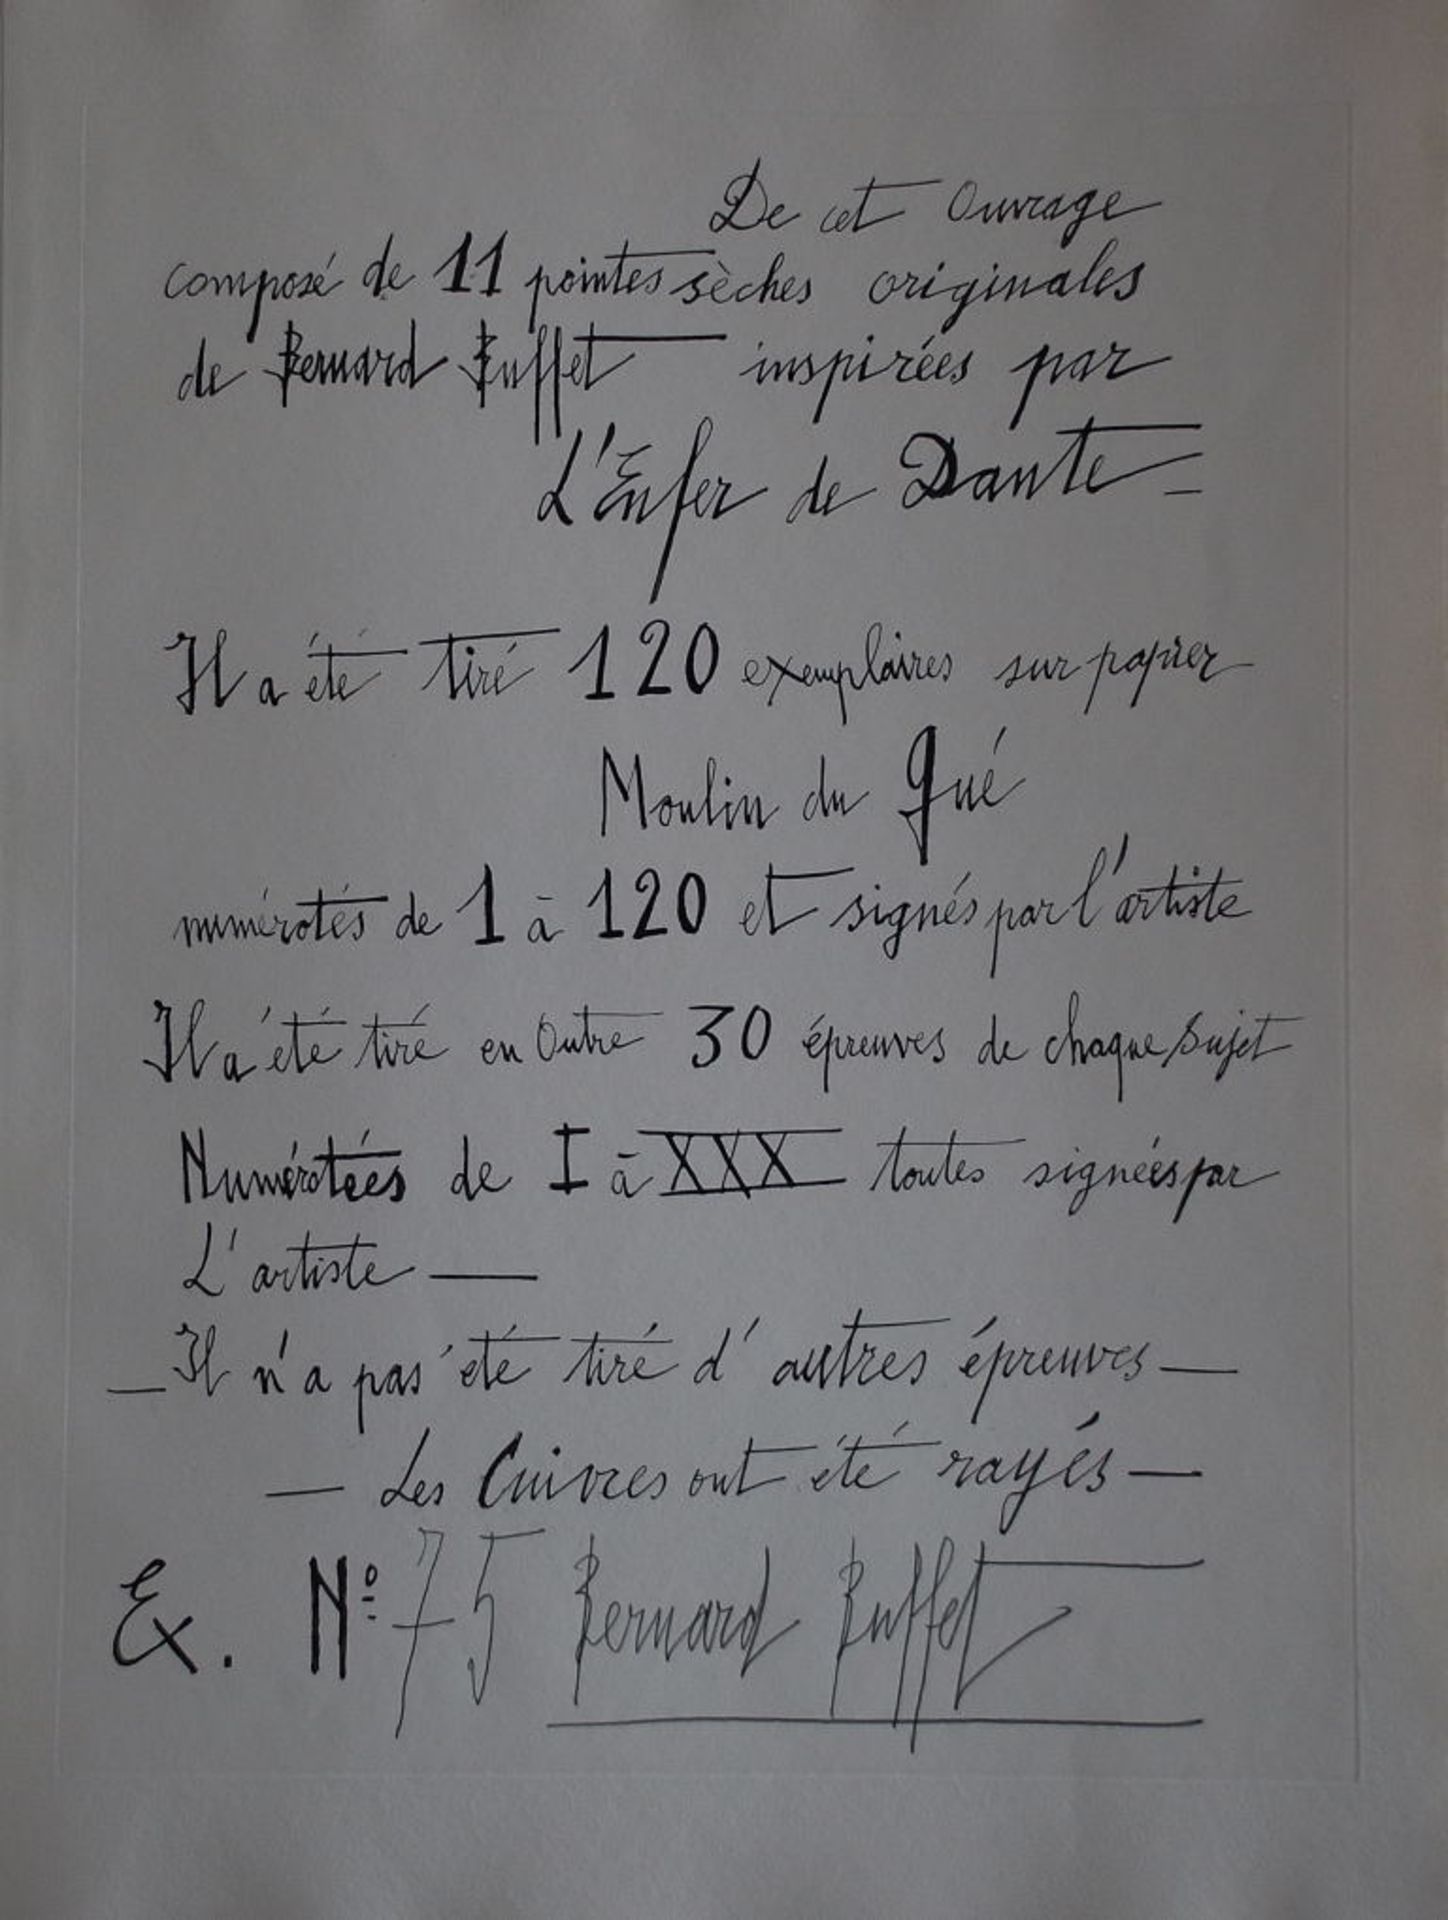 De cet Ouvrage
composé de 11 pointes sèches originales
de Bernard Buffet inspirées par
L'Enfer de Dante —
Il a été tiré 120 exemplaires sur papier
Moulin du gué
numérotés de 1 à 120 et signés par l'artiste
Il a été tiré en Outre 30 épreuves de chaque sujet
Numérotées de I à XXX toutes signées par
L'artiste —
— Il n'a pas été tiré d'autres épreuves —
— Les Cuivres ont été rayés —
Ex. Nº 75 Bernard Buffet